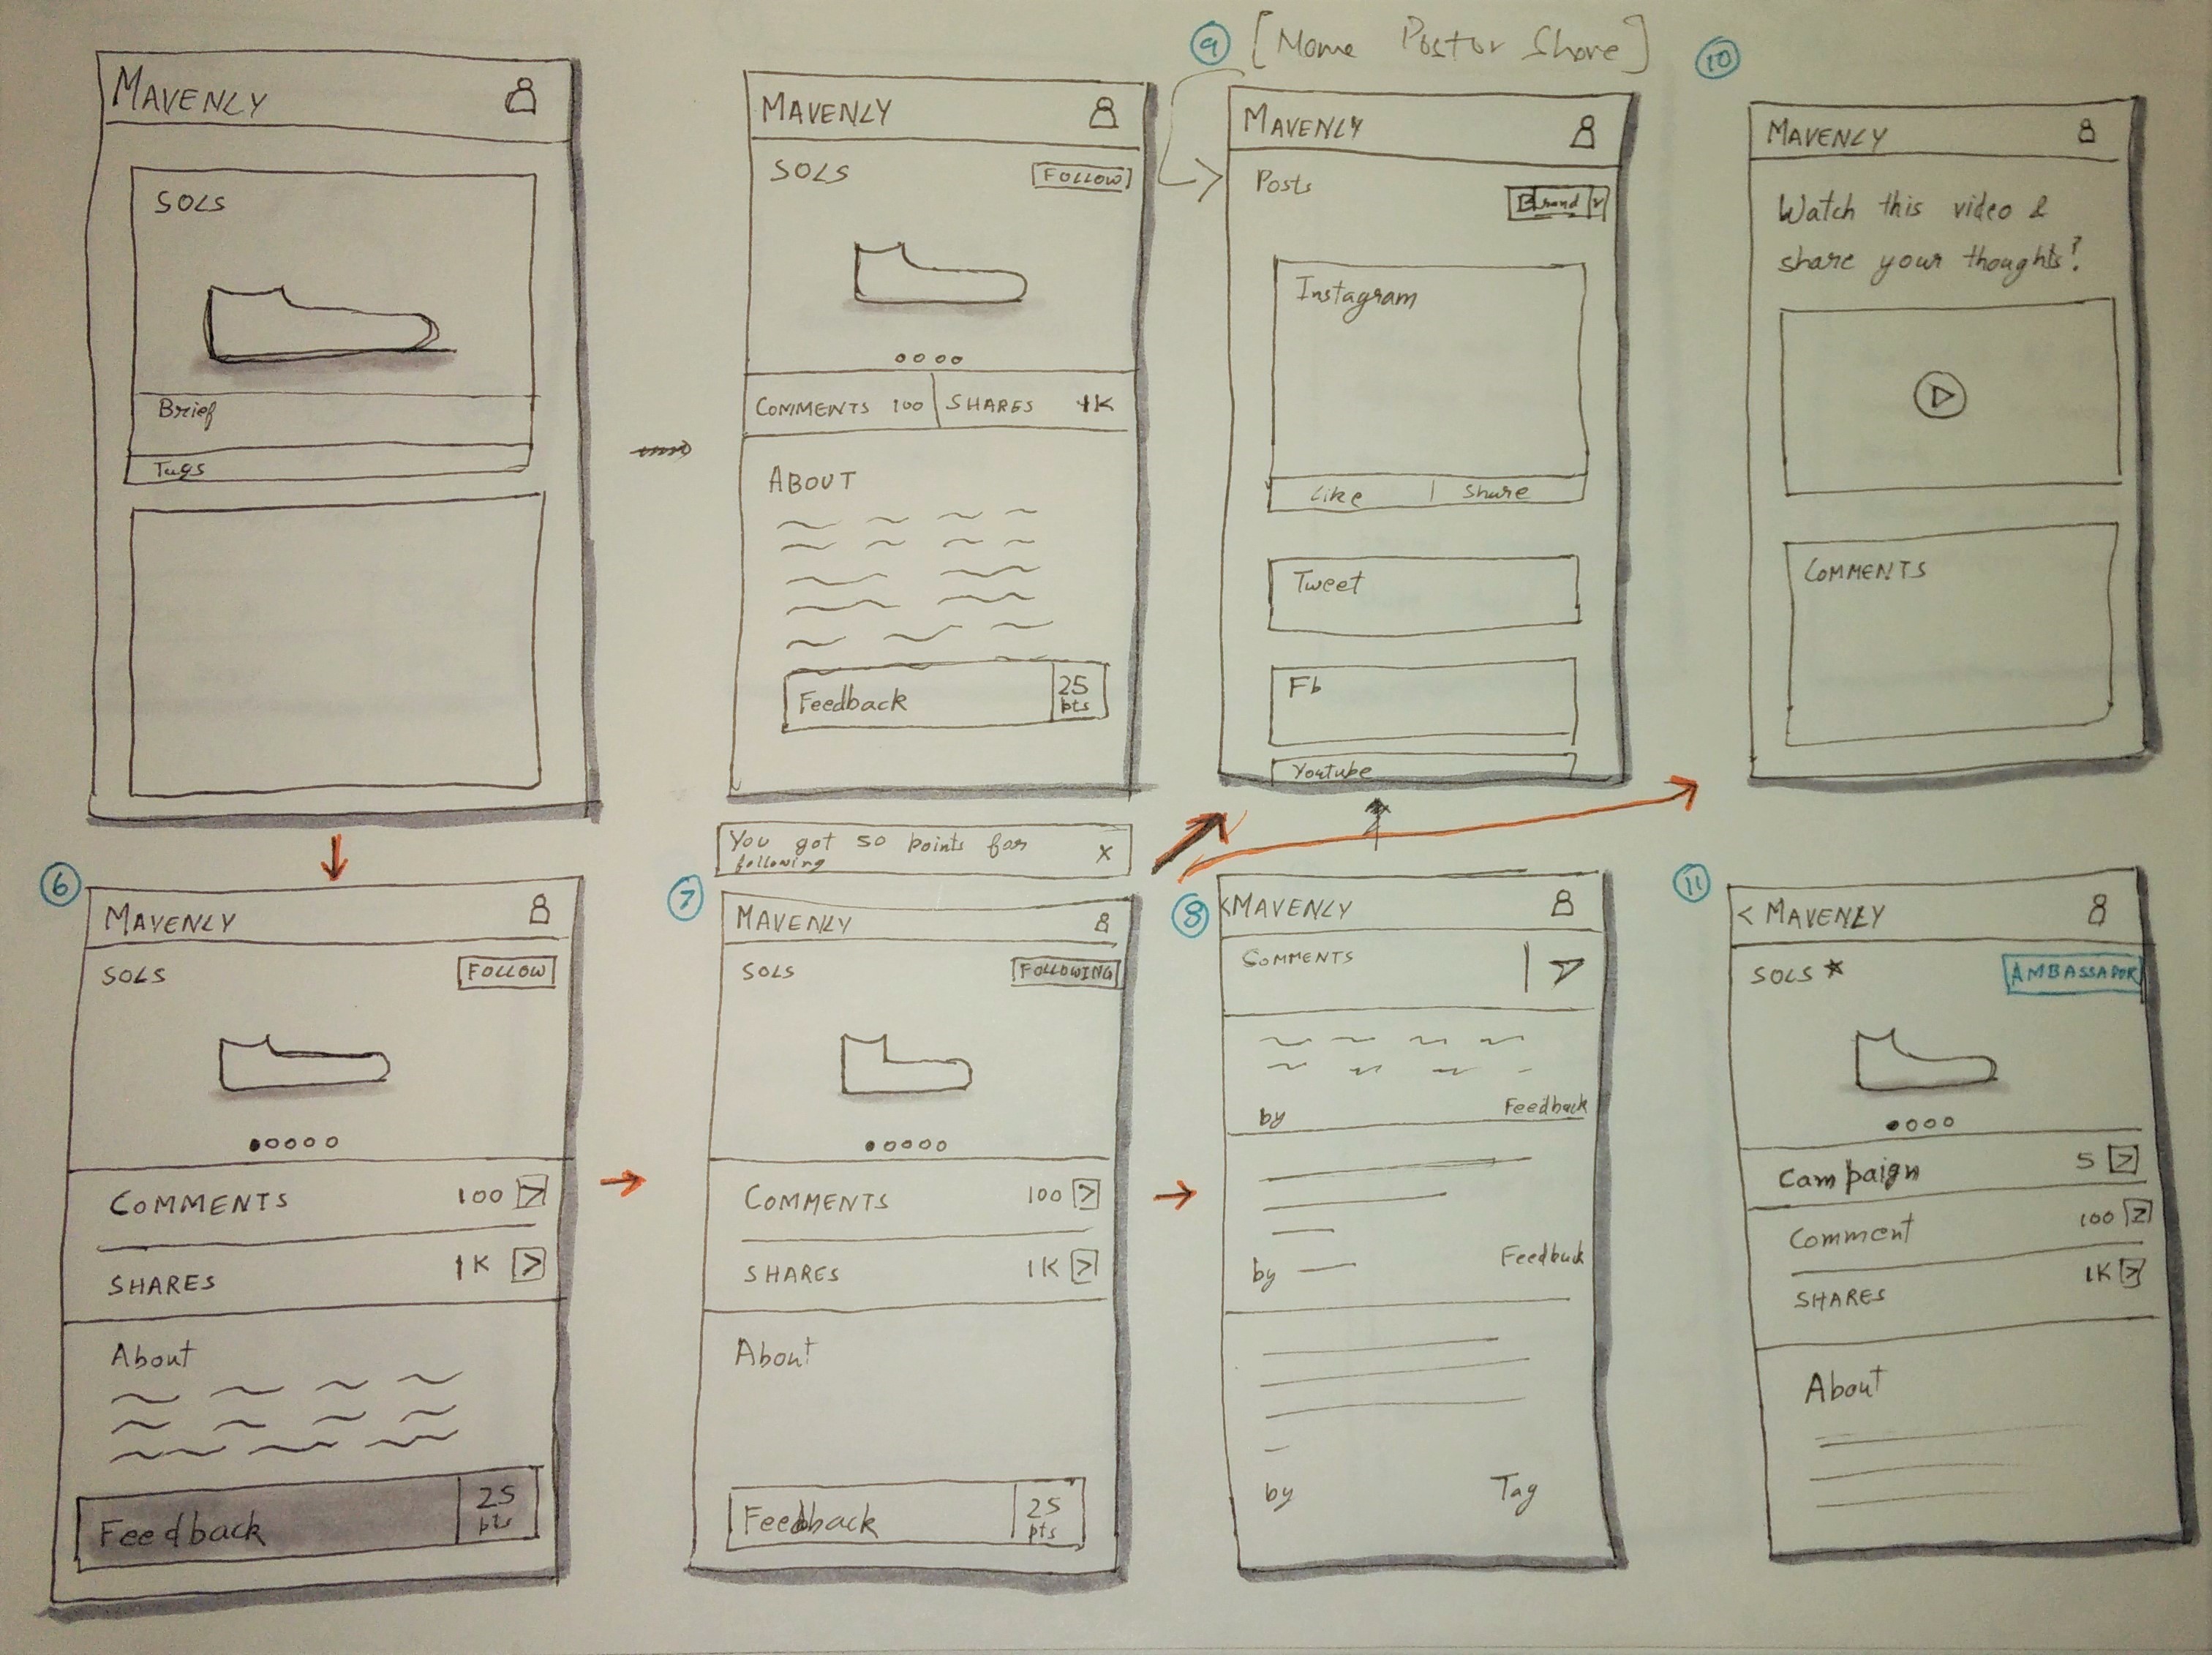 MAVENLY
SOLS
Brief
Tags
MAVENLY
SOLS
FOLLOW
COMMENTS 100
SHARES 1K
ABOUT
Feedback
25
pts
9
MAVENLY
Posts
Brand
Instagram
Like
Share
Tweet
Fb
Youtube
10
MAVENLY
Watch this video &
share your thoughts?
COMMENTS
6
MAVENLY
SOLS
FOLLOW
COMMENTS 100 >
SHARES 1K >
About
Feedback
25
pts
You got 50 points for
following
X
7
MAVENLY
SOLS
FOLLOWING
COMMENTS 100 >
SHARES 1K >
About
Feedback
25
pts
8
<MAVENLY
COMMENTS
by
Feedback
by
Feedback
by
Tag
11
< MAVENLY
SOLS
AMBASSADOR
Campaign 5 >
Comment 100 >
SHARES 1K >
About